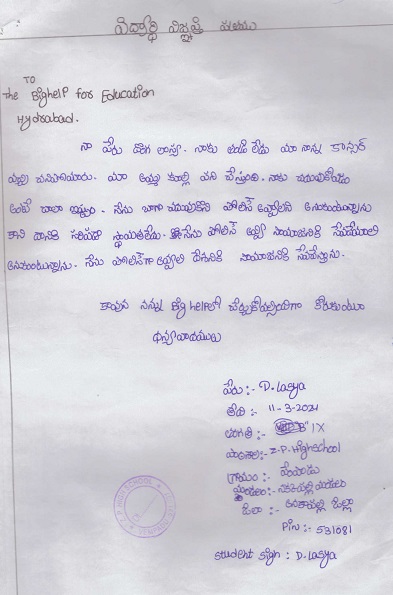 విద్యార్థి విజ్ఞప్తి పత్రము
TO
The Bighelp for Education
Hyderabad.
నా పేరు దొగ లాస్య. నాకు తండ్రి లేడు మా నాన్న కాన్సర్
వల్ల చనిపోయారు. మా అమ్మ కూలి పని చేస్తుంది. నాకు చదువుకోవడం
అంటే చాలా ఇష్టం. నేను బాగా చదువుకొని పోలీస్ అవ్వాలని అనుకుంటున్నాను
కాని దానికి సరిపడా స్థోమతలేదు. నేను పోలీస్ అయ్యి సమాజానికి సేవచేయాలి
అనుకుంటున్నాను. నేను పోలీస్‌గా అవ్వాలి దేశానికి సమాజానికి సేవచేస్తాను.
కావున నన్ను Big helpలో చేర్చుకోవల్సిందిగా కోరుకుంటూ
ధన్యవాదములు
పేరు:- D.Lasya
తేది:- 11-3-2021
తరగతి:- "B" IX
పాఠశాల:- Z.P.Highschool
గ్రామం:-
మండలం:-
జిల్లా:- జిల్లా
Pin:- 531081
Student sign : D.Lasya